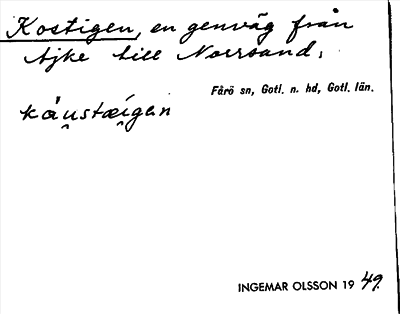 Kostigen, en genväg från
Ajke till Norrsand.
Fårö sn, Gotl. n. hd, Gotl. län.
kǻu̯stæi̯gεn
INGEMAR OLSSON 19 49.